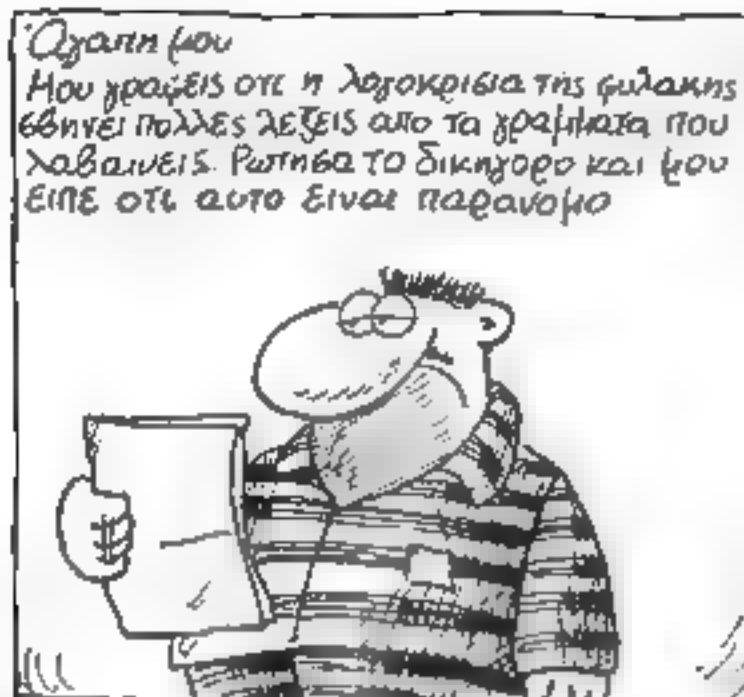 Αγαπη μου
Μου γραφεις οτι η λογοκρισια της φυλακης
σβηνει πολλες λεξεις απο τα γραμματα που
λαβαινεις. Ρωτησα το δικηγορο και μου
ειπε οτι αυτο ειναι παρανομο